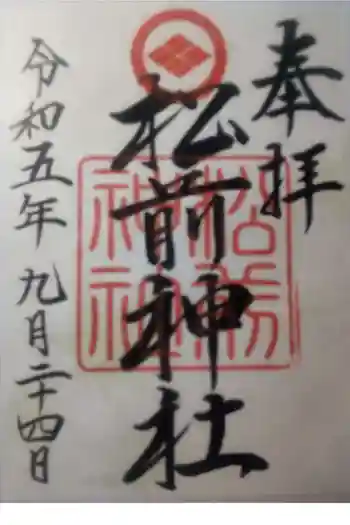 奉拝
松前神社
松前
神社
令和五年 九月二十四日